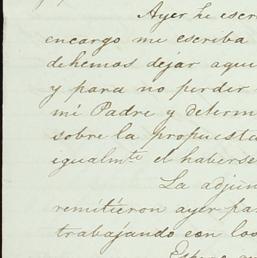 Ayer he escr
encargo me escriba
dehemos dejar aqui
y para no perder
mi Padre y determ
sobre la propuesta
igualmte el haberse
La adjun
remitieron ayer par
trabajando con los
Espero